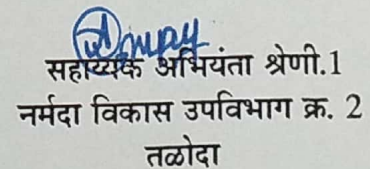 सहाय्यक अभियंता श्रेणी.1
नर्मदा विकास उपविभाग क्र. 2
तळोदा